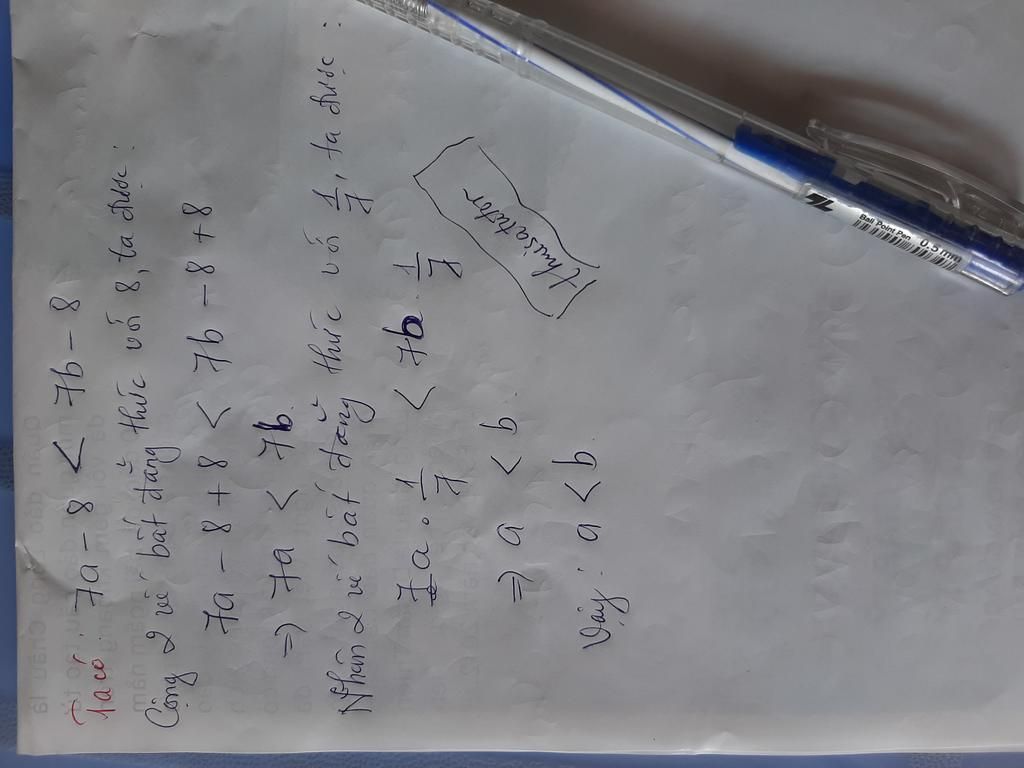 Ta có 7a - 8 < 7b - 8
Cộng 2 vế bất đẳng thức với 8, ta được:
7a - 8 + 8 < 7b - 8 + 8
=> 7a < 7b.
Nhân 2 vế bất đẳng thức với 1/7, ta được:
7a . 1/7 < 7b . 1/7
=> a < b
Vậy: a < b
thuisatutor
Ball Point Pen 0.5mm